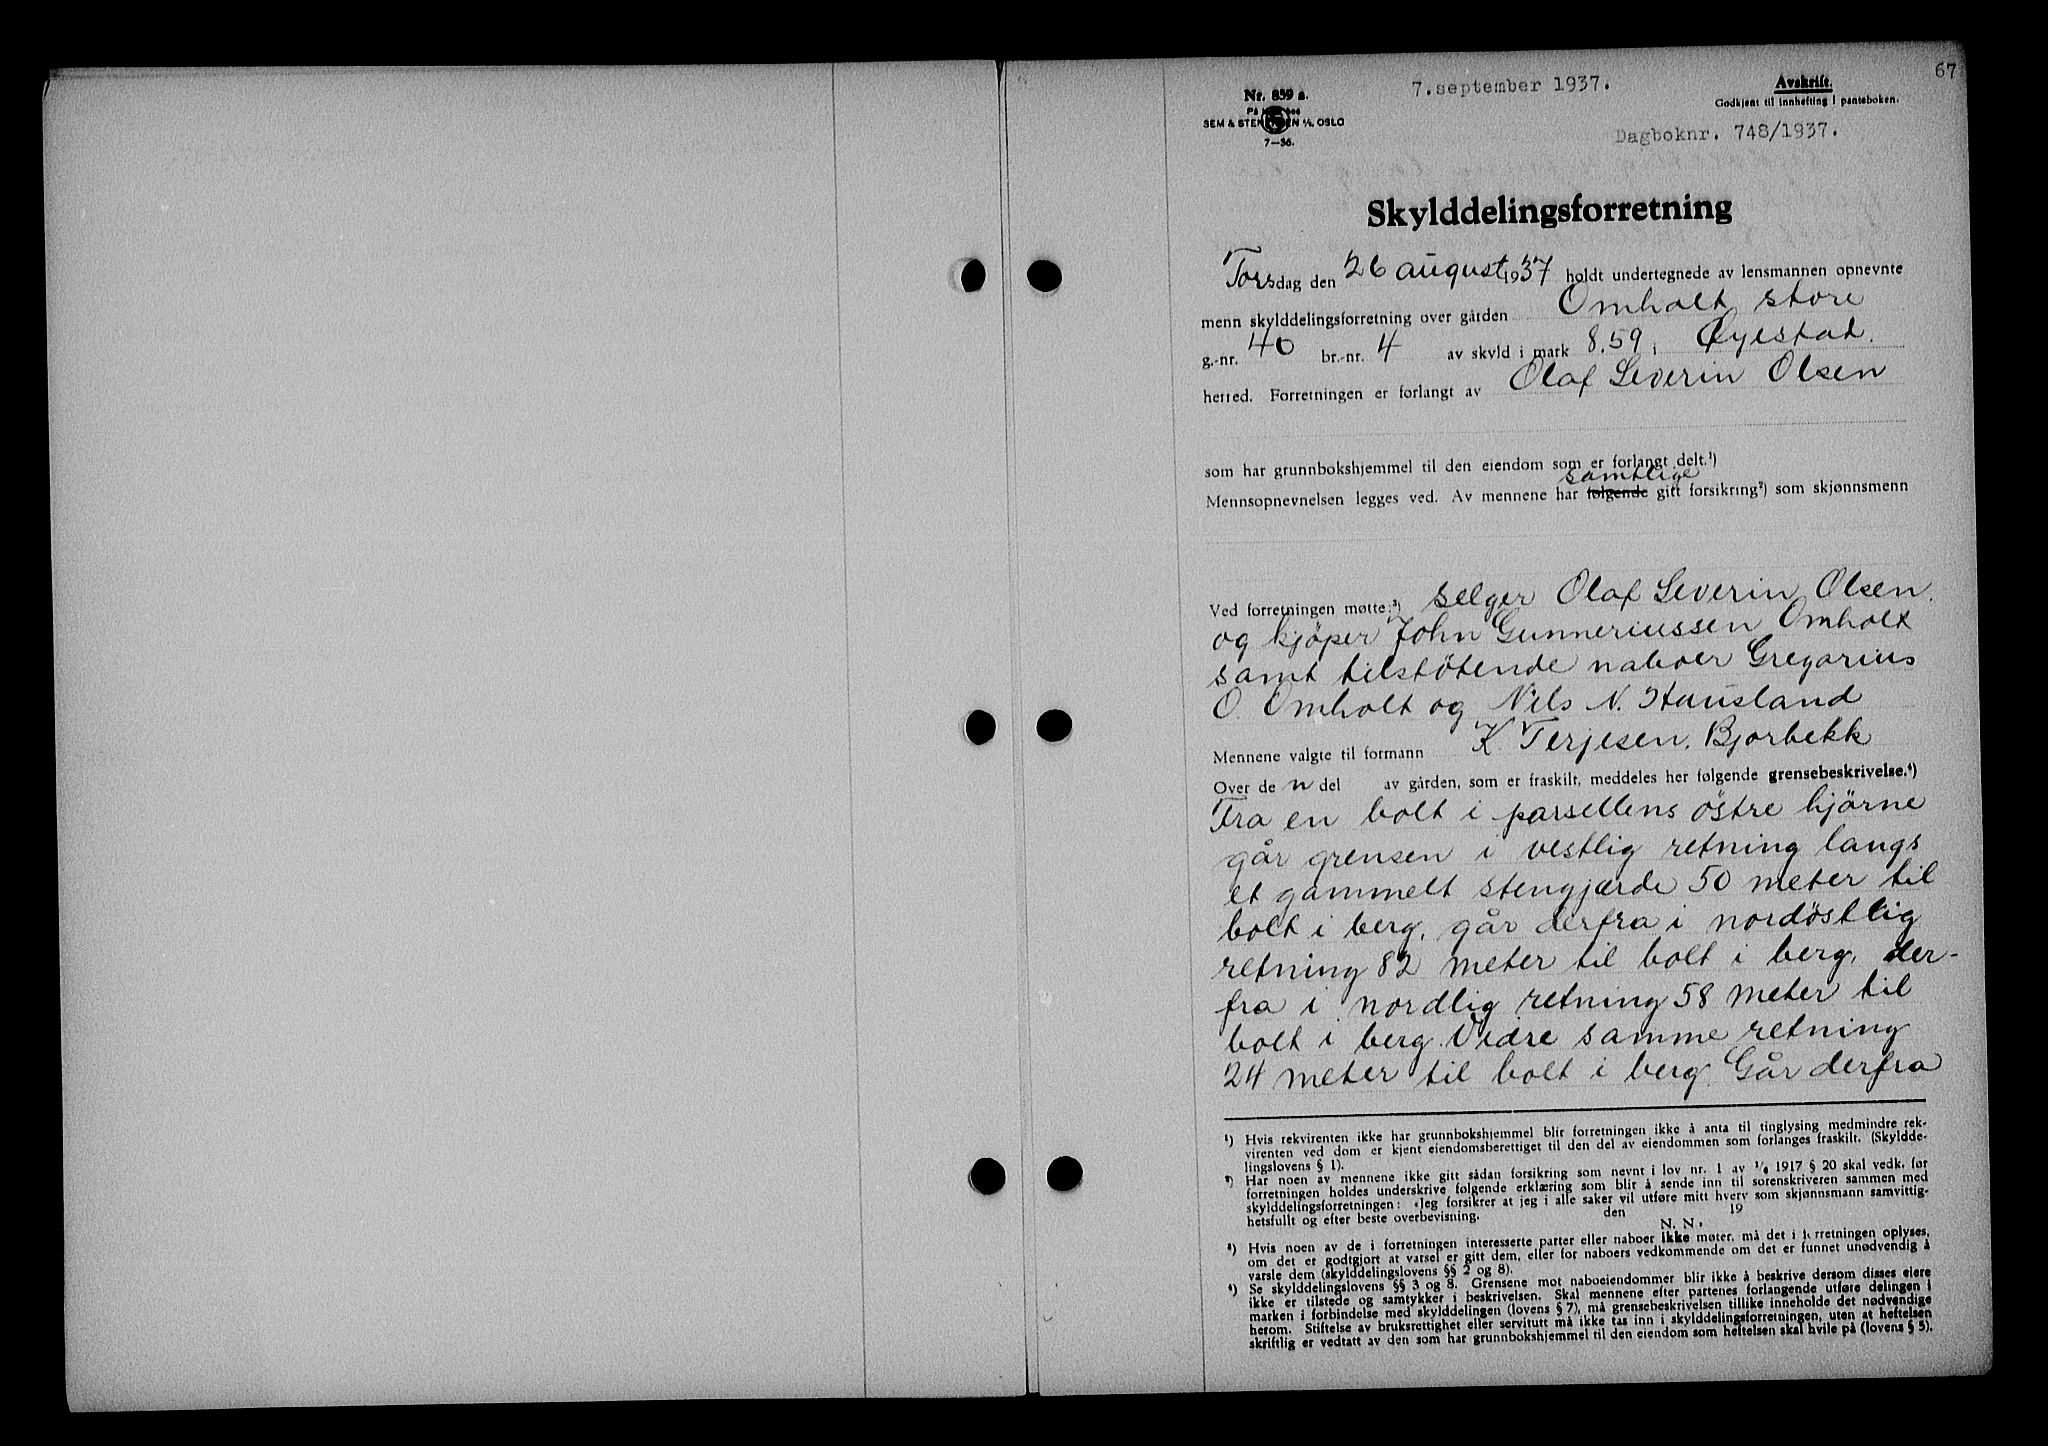 67
7.september 1937.
Avskrift.
Nr. 859 a.
Godkjent til innhefting i panteboken.
SEM & STENERSEN A/S, OSLO
7—36.
Dagboknr. 748/1937.
Skylddelingsforretning
Torsdag den 26 august 1937 holdt undertegnede av lensmannen opnevnte
menn skylddelingsforretning over gården Omholt store
g.-nr. 40 br.-nr. 4 av skyld i mark 8.59 i Øyestad.
herred. Forretningen er forlangt av Olaf Severin Olsen
som har grunnbokshjemmel til den eiendom som er forlangt delt.¹)
samtlige
Mennsopnevnelsen legges ved. Av mennene har følgende gitt forsikring²) som skjønnsmenn
Ved forretningen møtte:³) selger Olaf Severin Olsen.
og kjöper John Gunneriussen Omholt
samt tilstötende naboer Gregarius
O. Omholt og Nils N. Hausland
Mennene valgte til formann K. Terjesen. Bjorbekk
Over den del av gården, som er fraskilt, meddeles her følgende grensebeskrivelse.⁴)
Fra en bolt i parsellens östre hjörne
går grensen i vestlig retning langs
et gammelt stengjærde 50 meter til
bolt i berg, går derfra i nordöstlig
retning 82 meter til bolt i berg, der-
fra i nordlig retning 58 meter til
bolt i berg. Vidre samme retning
24 meter til bolt i berg. Går derfra
¹) Hvis rekvirenten ikke har grunnbokshjemmel blir forretningen ikke å anta til tinglysing medmindre rek-
virenten ved dom er kjent eiendomsberettiget til den del av eiendommen som forlanges fraskilt. (Skyldde-
lingslovens § 1).
²) Har noen av mennene ikke gitt sådan forsikring som nevnt i lov nr. 1 av 1/6 1917 § 20 skal vedk. før
forretningen holdes underskrive følgende erklæring som blir å sende inn til sorenskriveren sammen med
skylddelingsforretningen: «Jeg forsikrer at jeg i alle saker vil utføre mitt hverv som skjønnsmann samvittig-
hetsfullt og efter beste overbevisning. den 19
N. N.
³) Hvis noen av de i forretningen interesserte parter eller naboer ikke møter, må det i forretningen oplyses,
om det er godtgjort at varsel er gitt dem, eller for naboers vedkommende om det er funnet unødvendig å
varsle dem (skylddelingslovens §§ 2 og 8).
⁴) Se skylddelingslovens §§ 3 og 8. Grensene mot naboeiendommer blir ikke å beskrive dersom disses eiere
ikke er tilstede og samtykker i beskrivelsen. Skal mennene efter partenes forlangende utføre delingen i
marken i forbindelse med skylddelingen (lovens § 7), må grensebeskrivelsen tillike inneholde det nødvendige
herom. Stiftelse av bruksrettighet eller servitutt må ikke tas inn i skylddelingsforretningen, uten at heftelsen
skriftlig er vedtatt av den som har grunnbokshjemmel til den eiendom som heftelsen skal hvile på (lovens § 5).